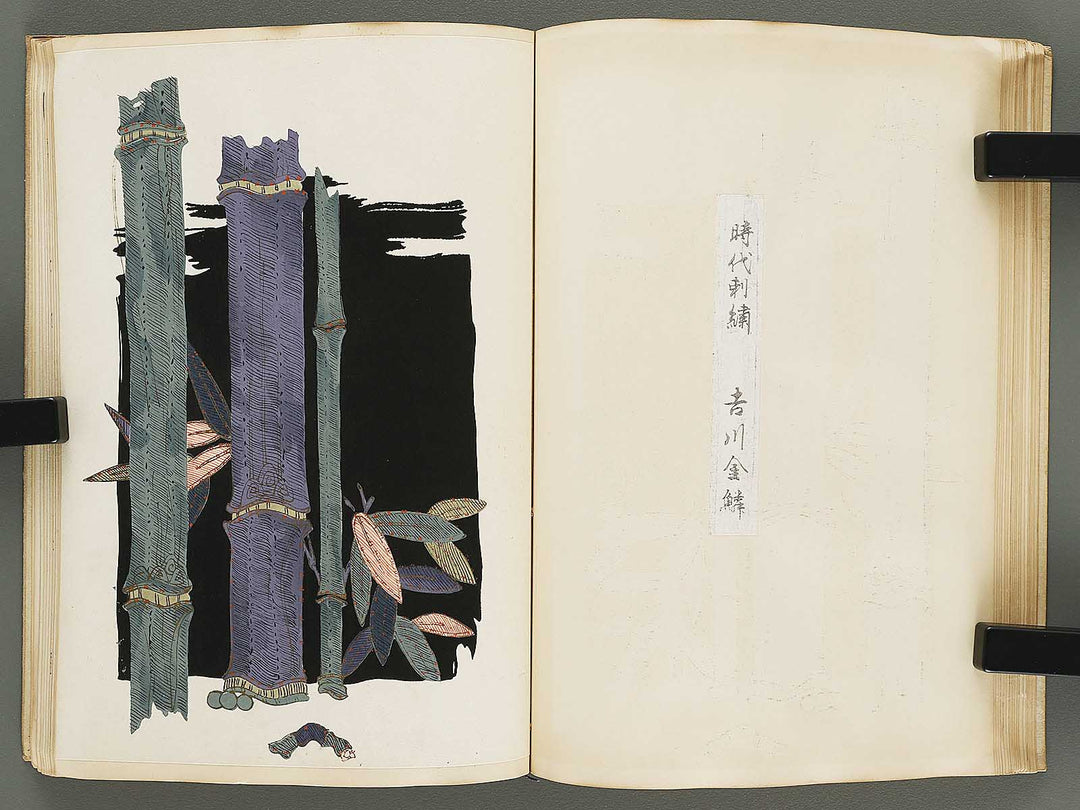 時代刺繍　吉川金鱗